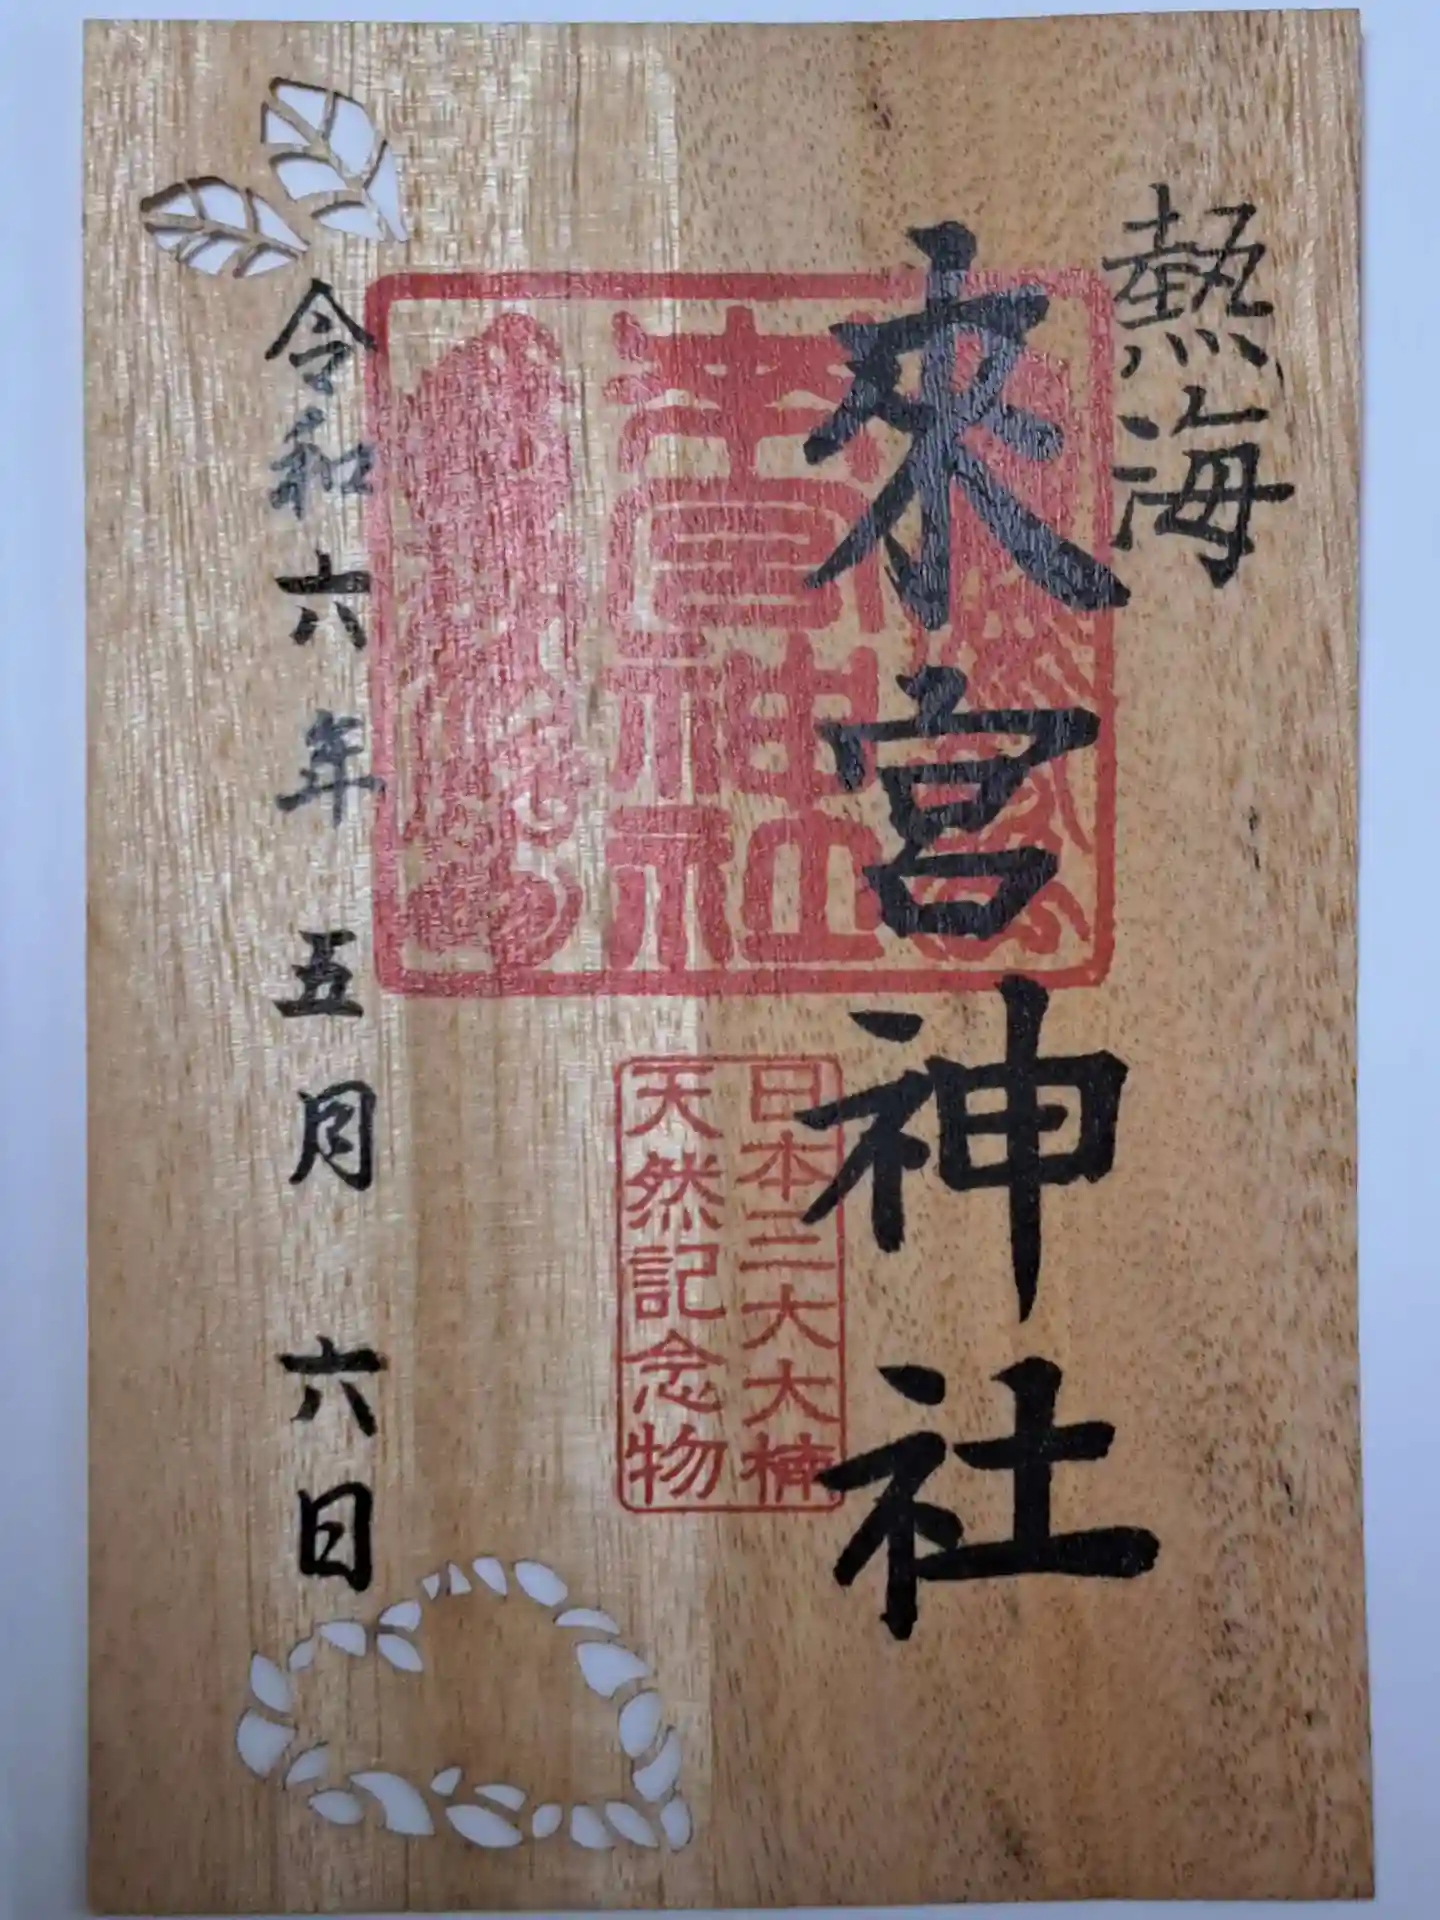 熱海
來宮神社
來宮神社
日本三大大楠
天然記念物
令和六年五月六日